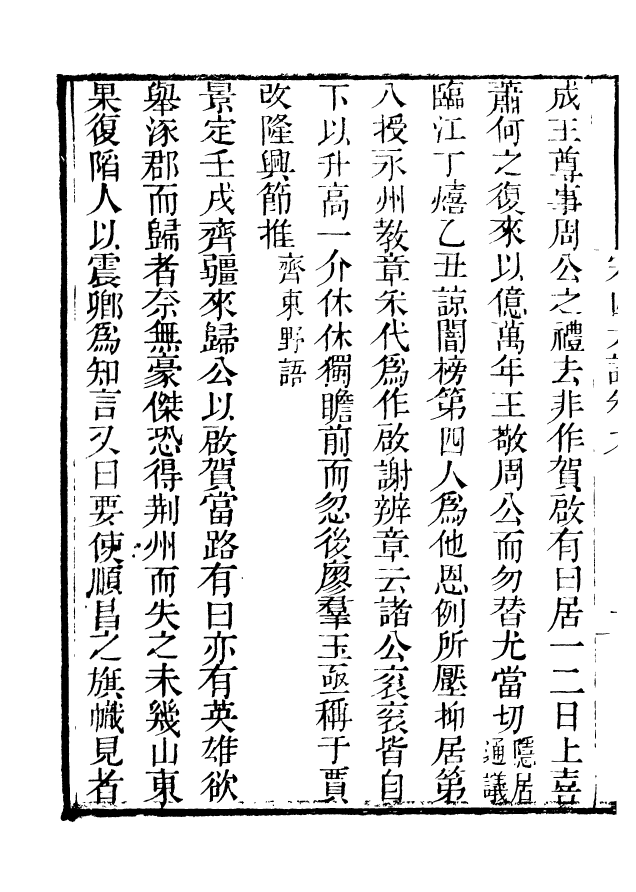 成王尊事周公之禮去非作賀啟有曰居一二日上喜
蕭何之復來以億萬年王敬周公而勿替尤當切隱居通議
臨江丁熺乙丑諒闇榜第四人爲他恩例所壓抑居第
八授永州教章采代爲作啟謝辨章云諸公袞袞皆自
下以升高一介休休獨瞻前而忽後廖羣玉亟稱于賈
改隆興節推齊東野語
景定壬戌齊疆來歸公以啟賀當路有曰亦有英雄欲
舉涿郡而歸者奈無豪傑恐得荆州而失之未幾山東
果復陷人以震卿爲知言又曰要使順昌之旗幟見者